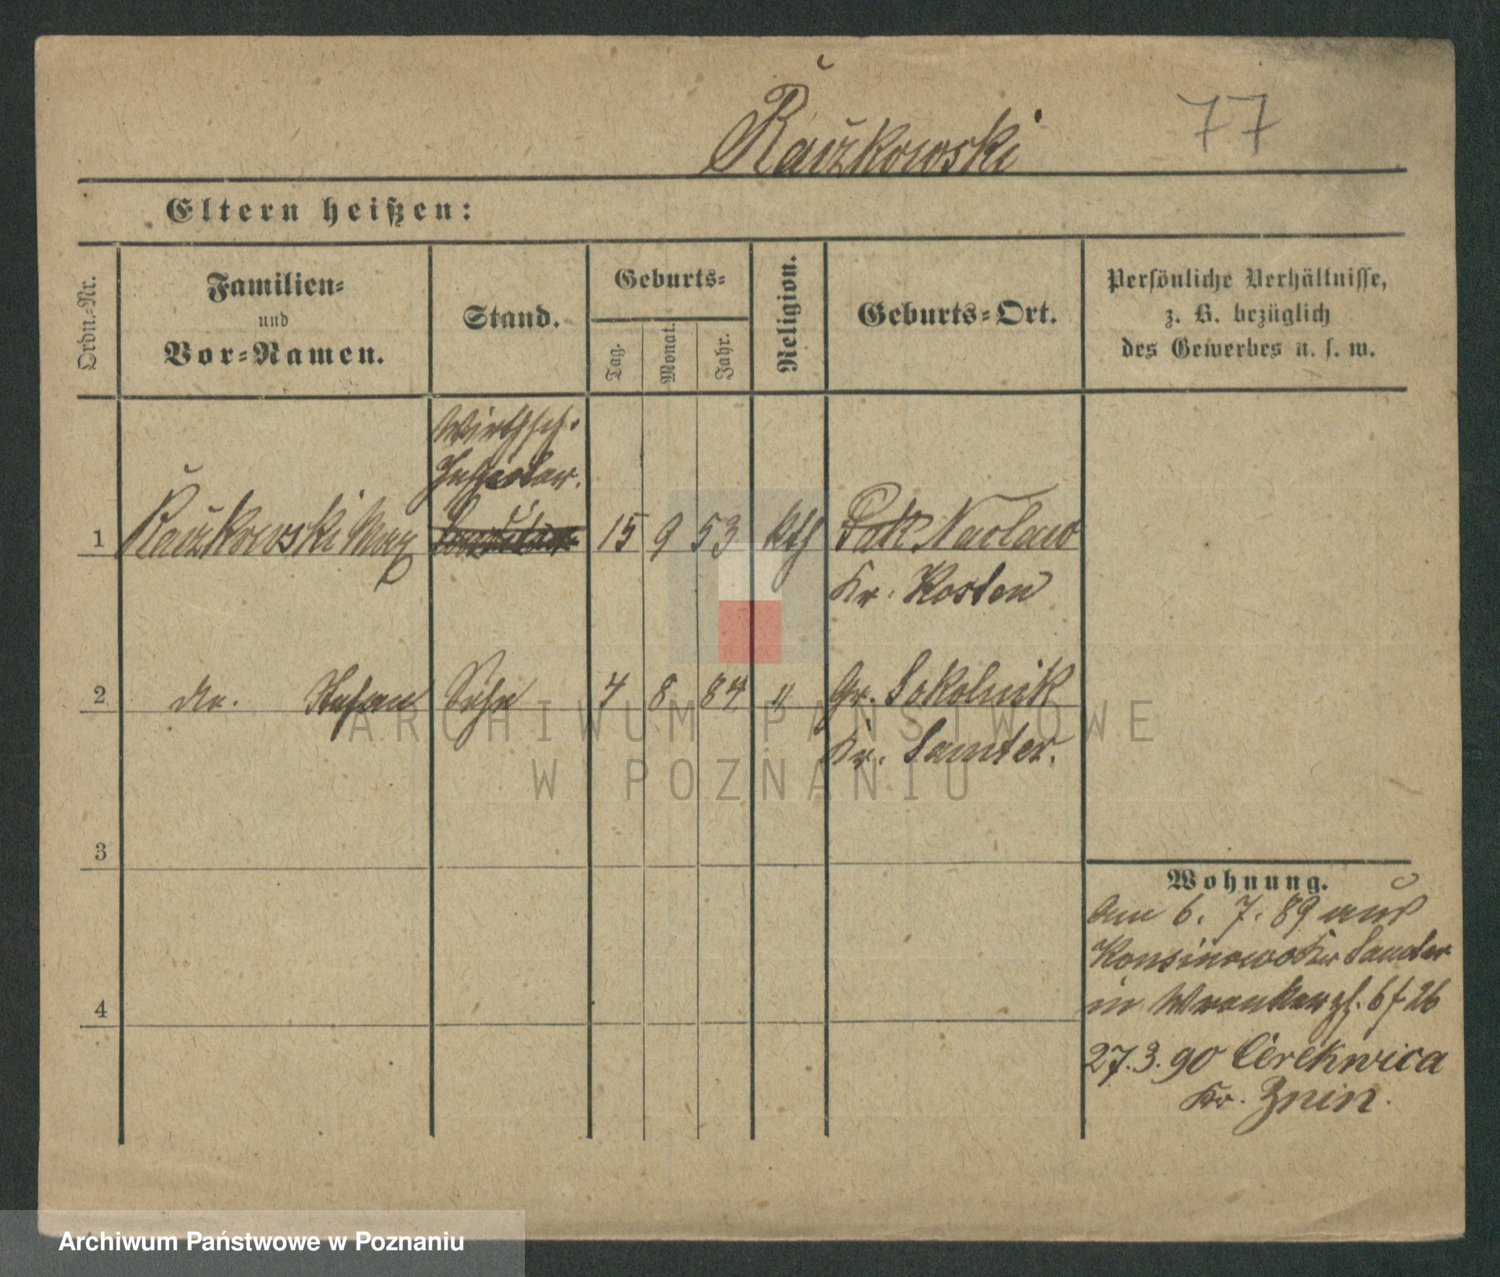 Rauzkowski 77
Eltern heißen:
Ordn.-Nr.
Familien-
und
Vor-Namen.
Stand.
Geburts-
Tag.
Monat.
Jahr.
Religion.
Geburts-Ort.
Persönliche Verhältnisse,
z. B. bezüglich
des Gewerbes u. s. w.
Wirthsch.
Inspector.
1 Rauzkowski Max 15 9 53 kth Naclaw
Kr. Kosten
2 do. Stefan Sohn 4 8 84 " Gr. Sokolnik
Kr. Samter.
3
4
Wohnung.
Am 6. 7. 89 aus
Konsinowo Kr Samter
in Wronkerpl. 6 f 26
27.3.90 Cerekwica
Kr. Znin.
ARCHIWUM PAŃSTWOWE
W POZNANIU
Archiwum Państwowe w Poznaniu